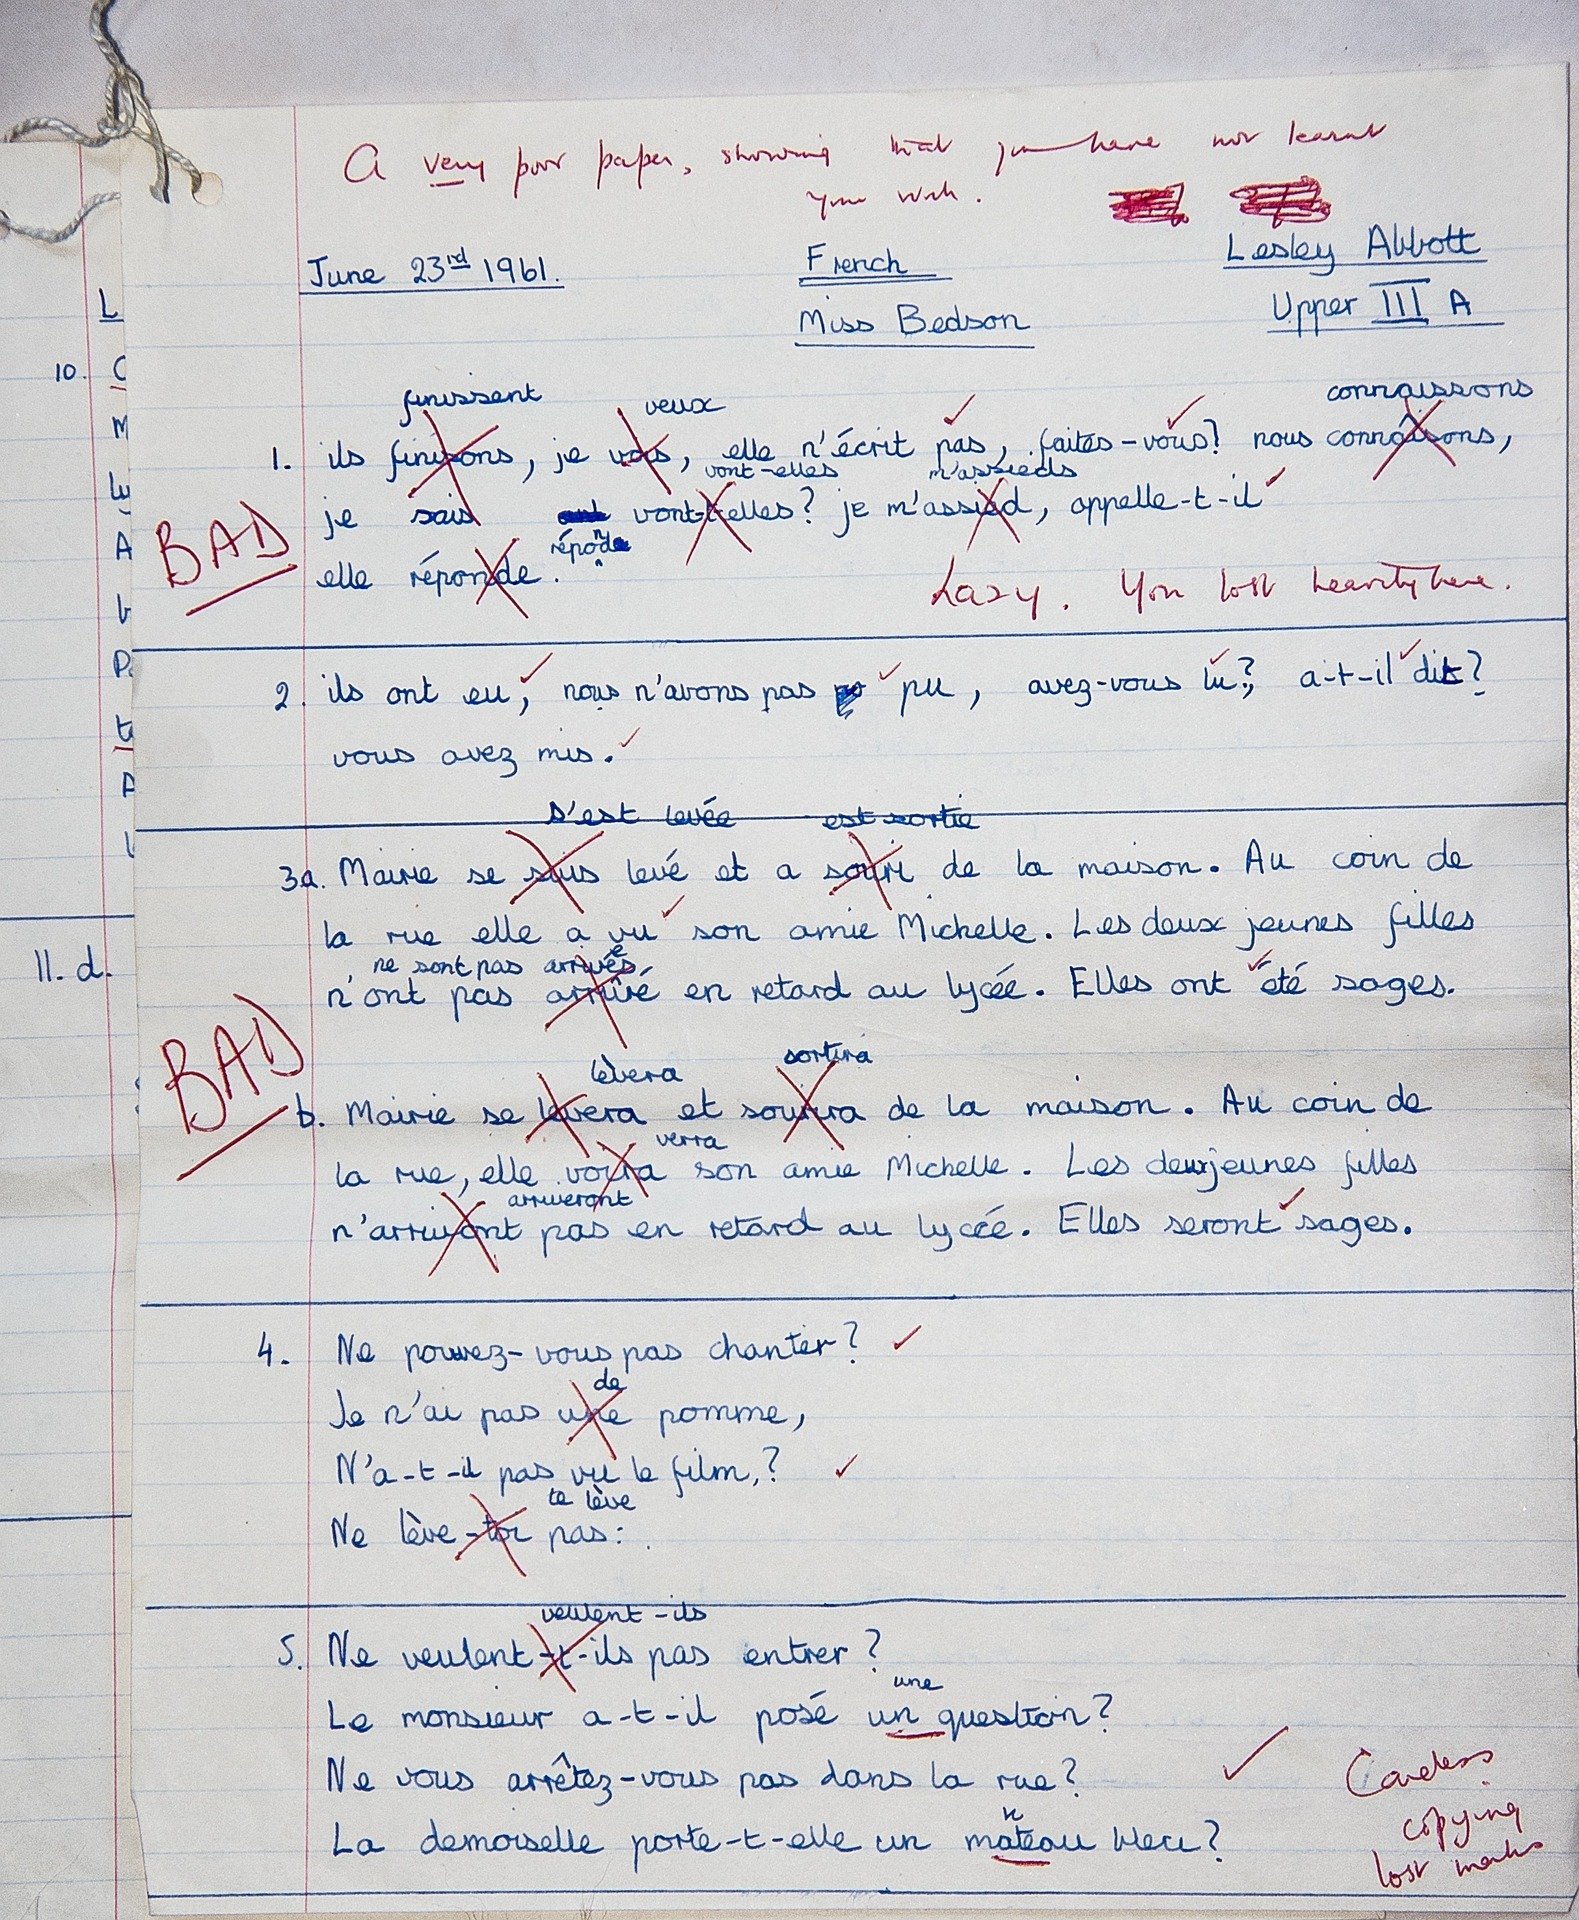 A very poor paper, showing that you have not learnt
your work.
June 23rd 1961.
French
Lesley Abbott
Miss Bedson
Upper III A
L
10. C
M
A
P
A
11. d.
finissent veux connaissons
1. ils finisons, je vois, elle n'écrit pas, faites-vous? nous connaîsons,
vont-elles m'assieds
je sais vont-t-elles? je m'assied, appelle-t-il
réponde
elle réponde.
BAD
Lazy. You lost heavily here.
2. ils ont eu, nous n'avons pas pu, avez-vous lu?, a-t-il dit?
vous avez mis.
s'est levée est sortie
3a. Mairie se suis levé et a souri de la maison. Au coin de
la rue elle a vu son amie Michelle. Les deux jeunes filles
ne sont pas arrivées
n'ont pas arrivé en retard au lycée. Elles ont été sages.
BAD
lèvera sortira
b. Mairie se levera et sourira de la maison. Au coin de
verra
la rue, elle voira son amie Michelle. Les deux jeunes filles
arriveront
n'arrivont pas en retard au lycée. Elles seront sages.
4. Ne pouvez-vous pas chanter?
de
Je n'ai pas une pomme,
N'a-t-il pas vu le film,?
te lève
Ne lève-toi pas:
veulent-ils
5. Ne veulent-t-ils pas entrer?
une
Le monsieur a-t-il posé un question?
Ne vous arrêtez-vous pas dans la rue?
n
La demoiselle porte-t-elle un mateau bleu?
Careless
copying
lost marks